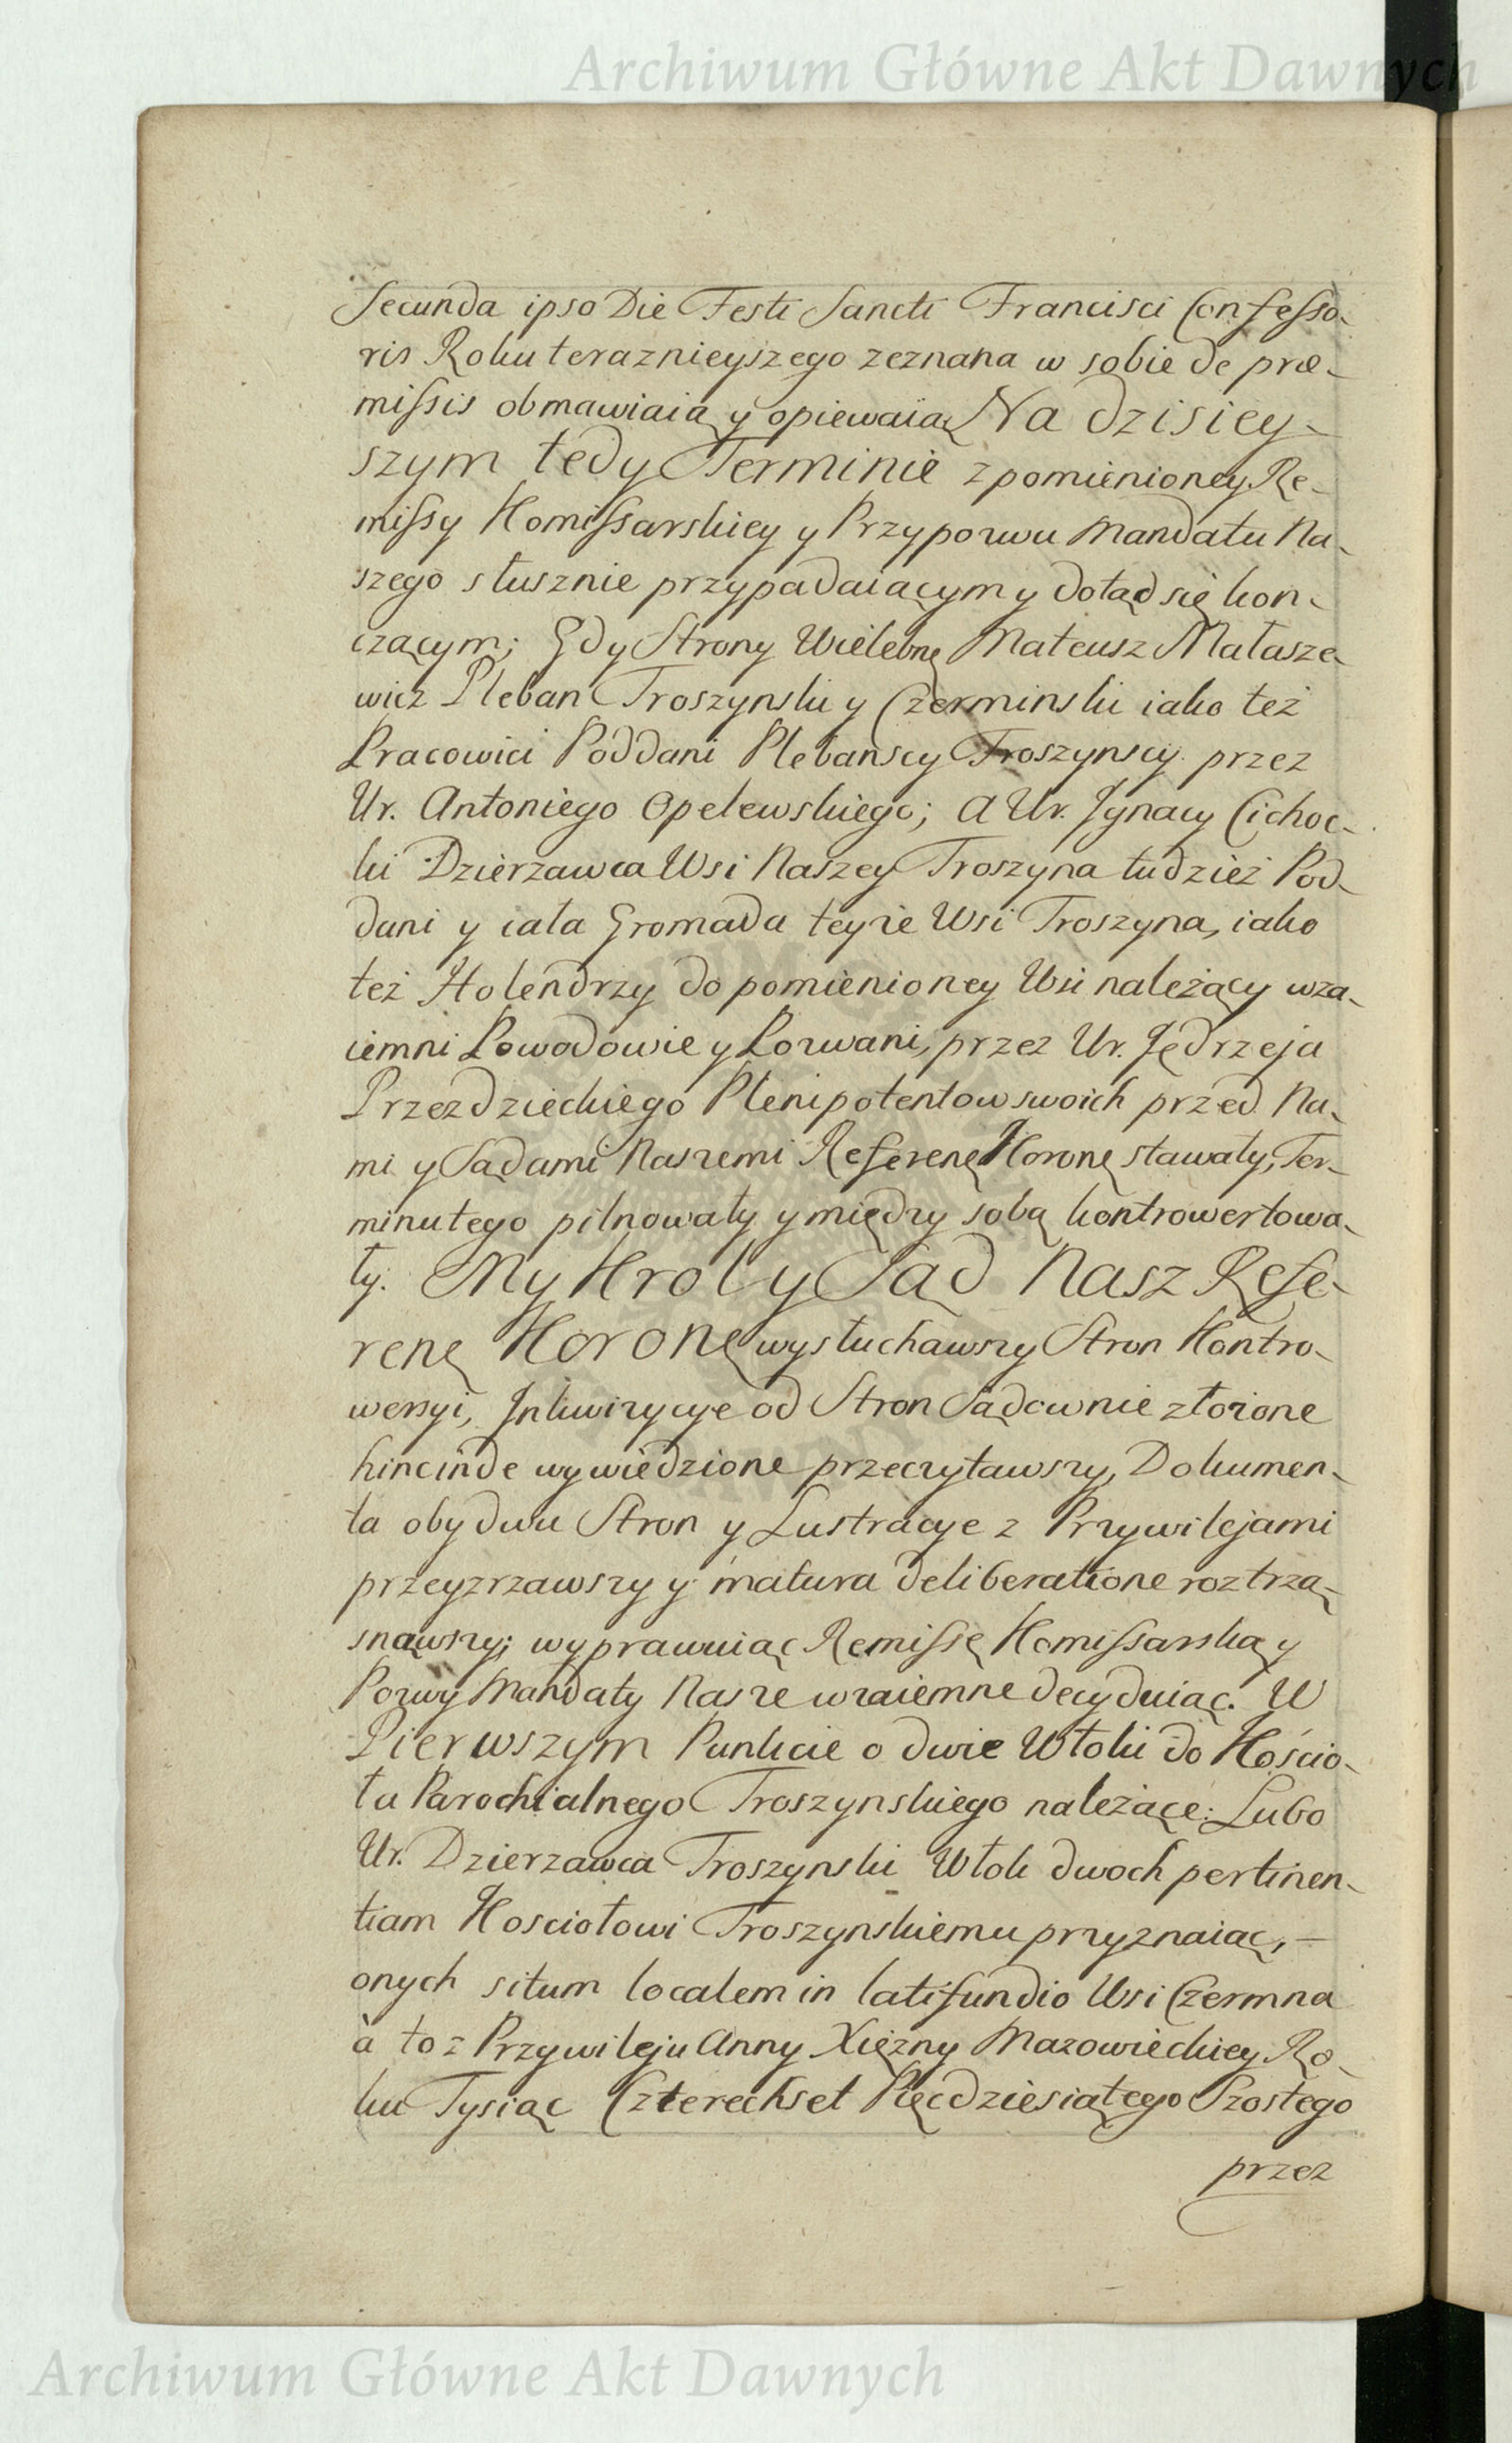 Archiwum Główne Akt Dawnych
Secunda ipso Die Festi Sancti Francisci Confesso-
ris Roku teraznieyszego zeznana w sobie de præ-
missis obmawiaią y opiewaią Na dzisiey-
szym tedy Terminie z pomienioney Re-
missy Komissarskiey y Przypozwu Mandatu Na-
szego słusznie przypadaiącym y dotąd się kon-
czącym; Gdy Strony Wielebne Mateusz Małasze-
wicz Pleban Troszynski y Czerminski iako też
Pracowici Poddani Plebanscy Troszynscy przez
Ur. Antoniego Opelewskiego; a Ur. Jgnacy Cichoc-
ki Dzierzawca Wsi Naszey Troszyna tudzież Pod-
dani y cała Gromada teyże Wsi Troszyna, iako
też Holendrzy do pomienioney Wsi należący wza-
iemni Powodowie y Pozwani, przez Ur. Jędrzeja
Przezdzieckiego Plenipotentow swoich przed Na-
mi y Sądami Naszemi Referenę Koronę stawały, Ter-
minu tego pilnowały y między sobą kontrowertowa-
ły. My Krol y Sąd Nasz Refe-
renę Koronę wysłuchawszy Stron Kontro-
wersyi, Jnkwizycye od Stron Sądownie złożone
hincinde wywiedzione przeczytawszy, Dokumen-
ta obydwu Stron y Lustracye z Przywilejami
przeyzrzawszy y matura deliberatione roztrzą-
snąwszy; wyprawuiąc Remissę Komissarską y
Pozwy Mandaty Nasze wzaiemne decyduiąc. W
Pierwszym Punkcie o dwie Włoki do Kościo-
ła Parochialnego Troszynskiego należące: Lubo
Ur. Dzierzawca Troszynski Włok dwoch pertinen-
tiam Kosciołowi Troszynskiemu przyznaiąc, —
onych situm localem in latifundio Wsi Czermna
à to z Przywileju Anny Xiężny Mazowieckiey Ro-
ku Tysiąc Czterechset Pięcdziesiątego Szostego
przez
Archiwum Główne Akt Dawnych